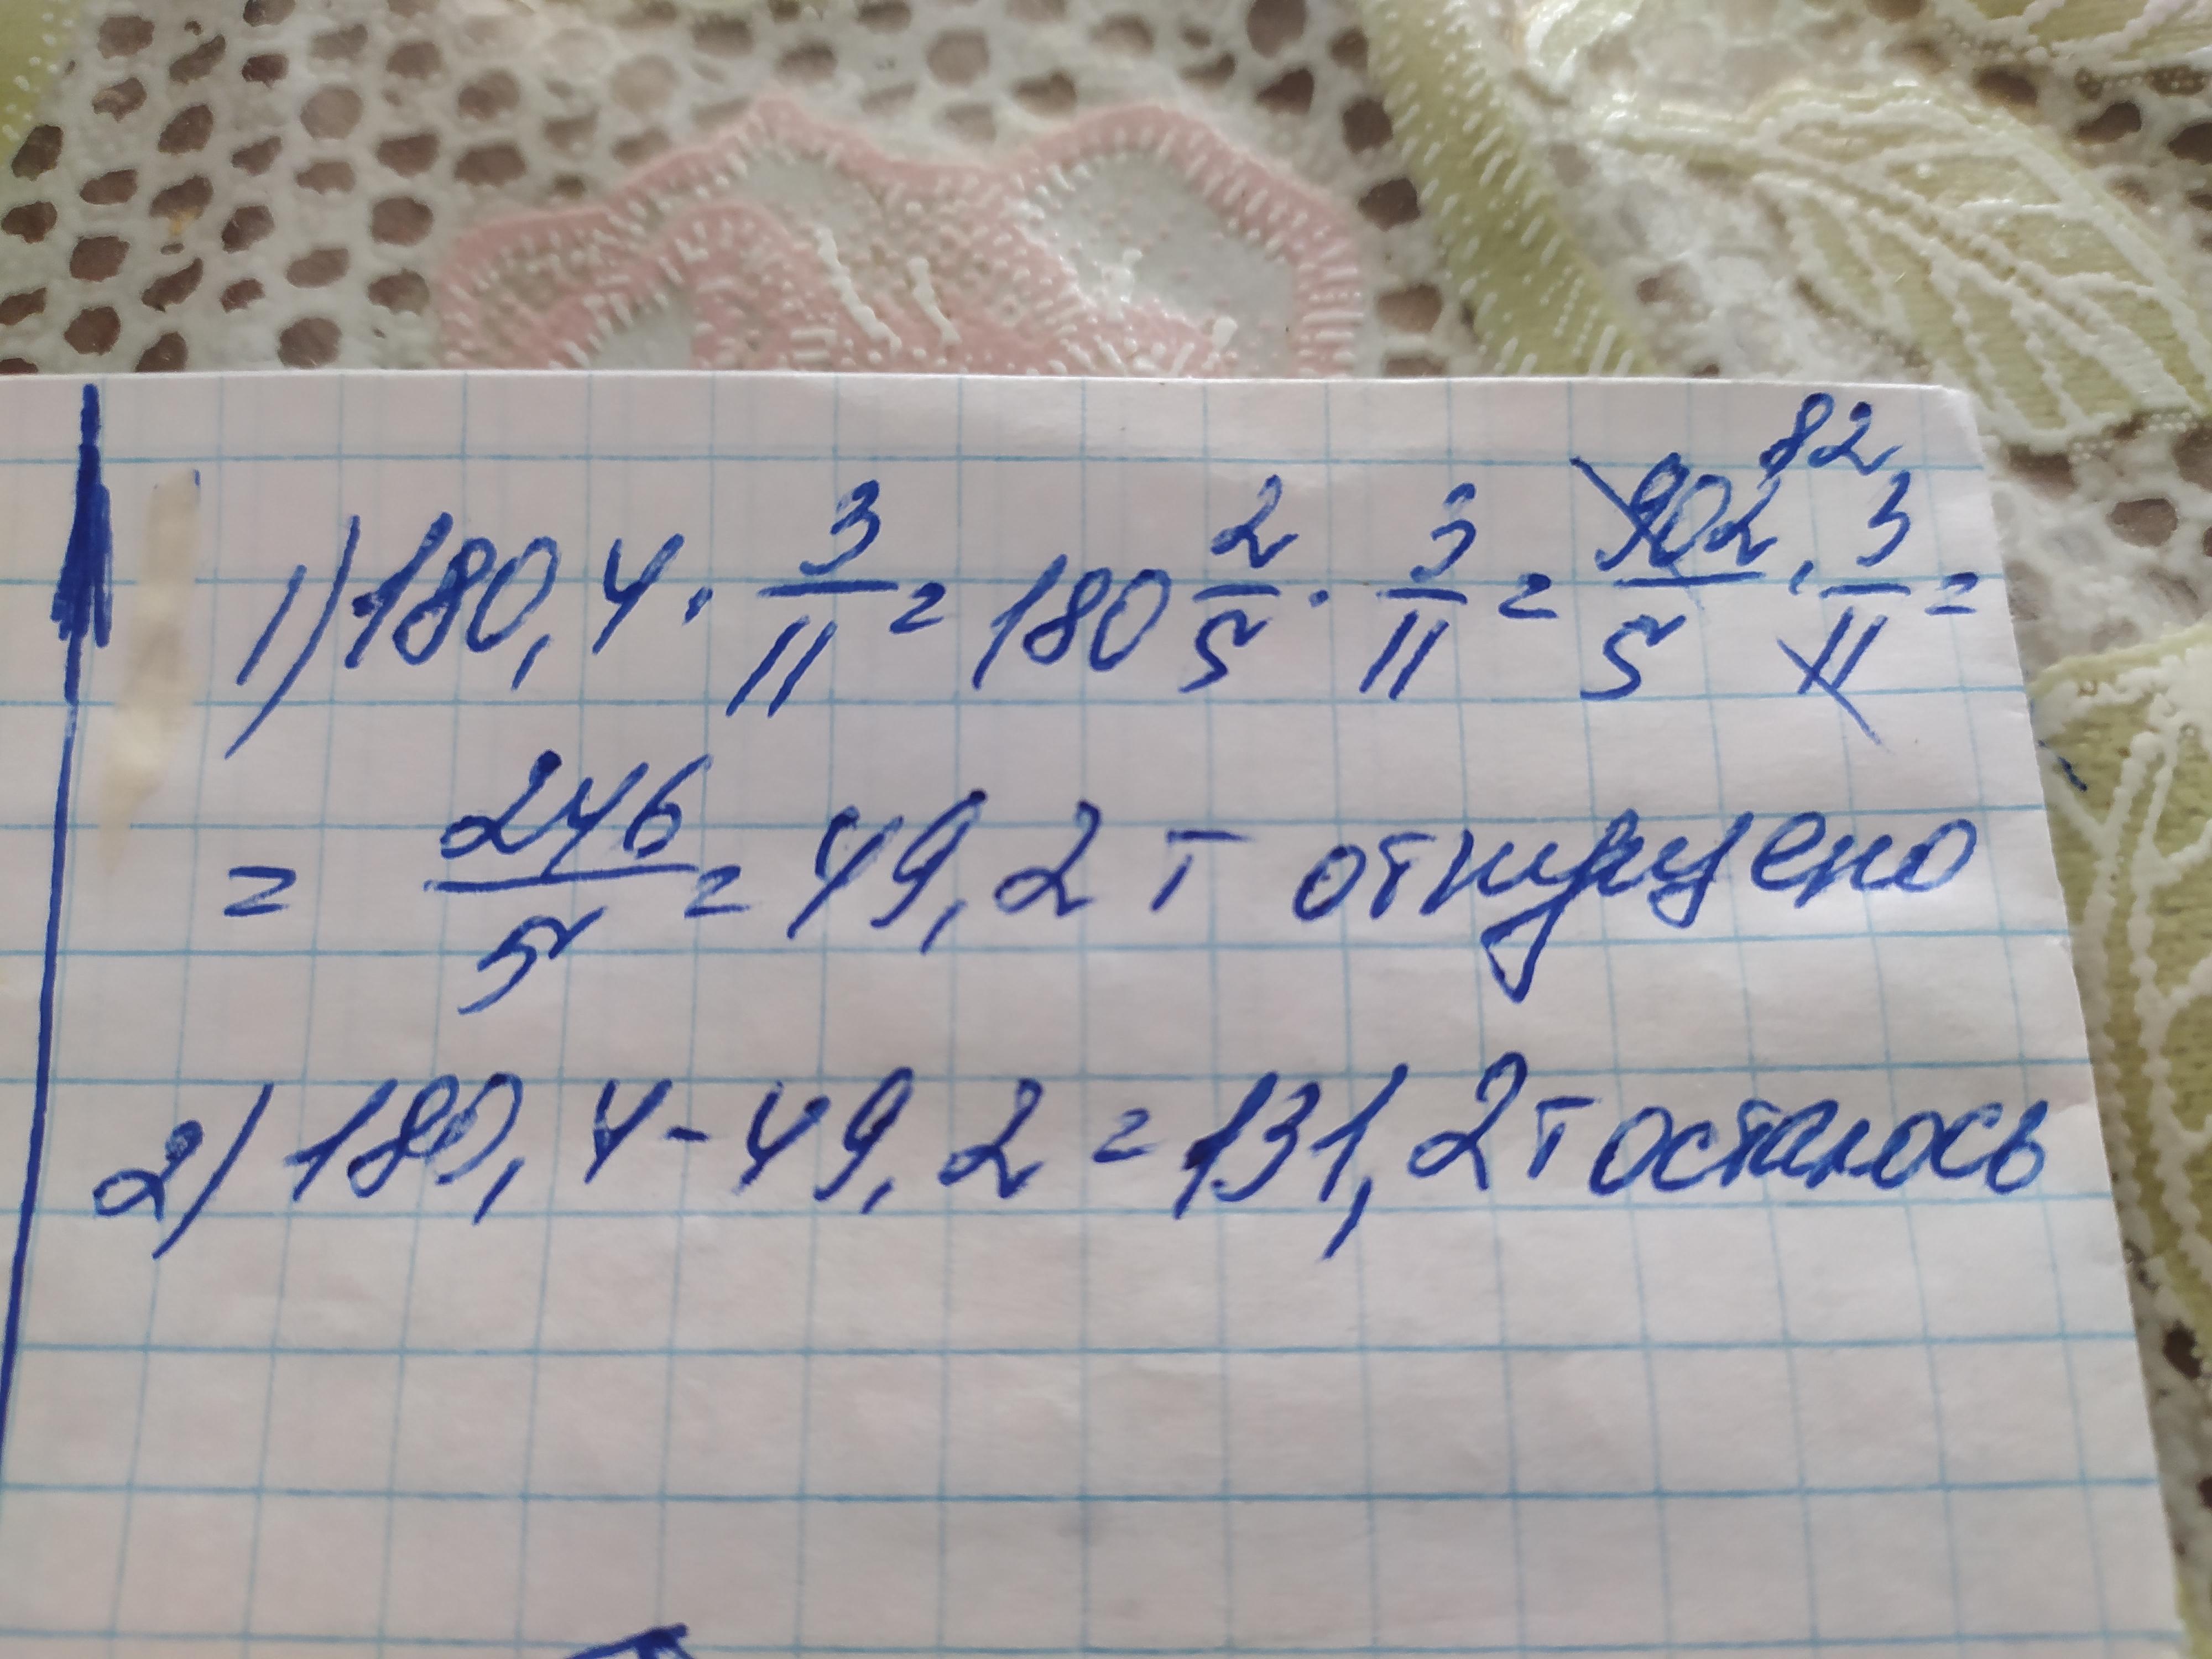 1) 180,4 · 3/11 = 180 2/5 · 3/11 = 902/5 · 3/11 = 82
= 246/5 = 49,2 т отпущено
2) 180,4 - 49,2 = 131,2 т осталось